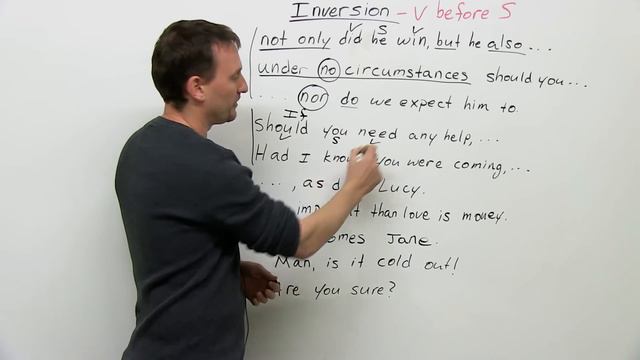 Inversion - V before S
V S V
not only did he win, but he also ...
under no circumstances should you ...
.... nor do we expect him to
If
Should you need any help, ...
V S V
Had I you were coming, ...
..., as Lucy.
than love is money.
Jane.
Man, is it cold out!
Are you sure?